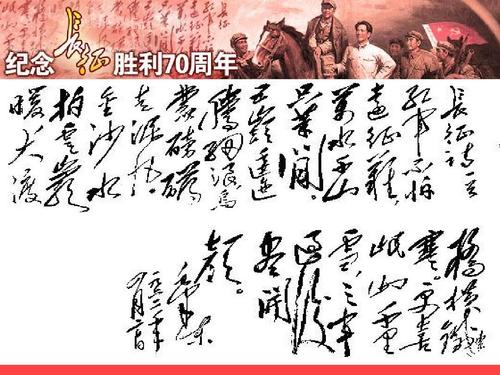 纪念长征胜利70周年
长征诗一首
红军不怕
远征难
万水千山
只等闲
五岭逶迤
腾细浪乌
蒙磅礴
走泥丸
金沙水
拍云崖
暖大渡
桥横铁索
寒。更喜
岷山千里
雪，三军
过后
尽开
颜。
毛泽东
一九六二年